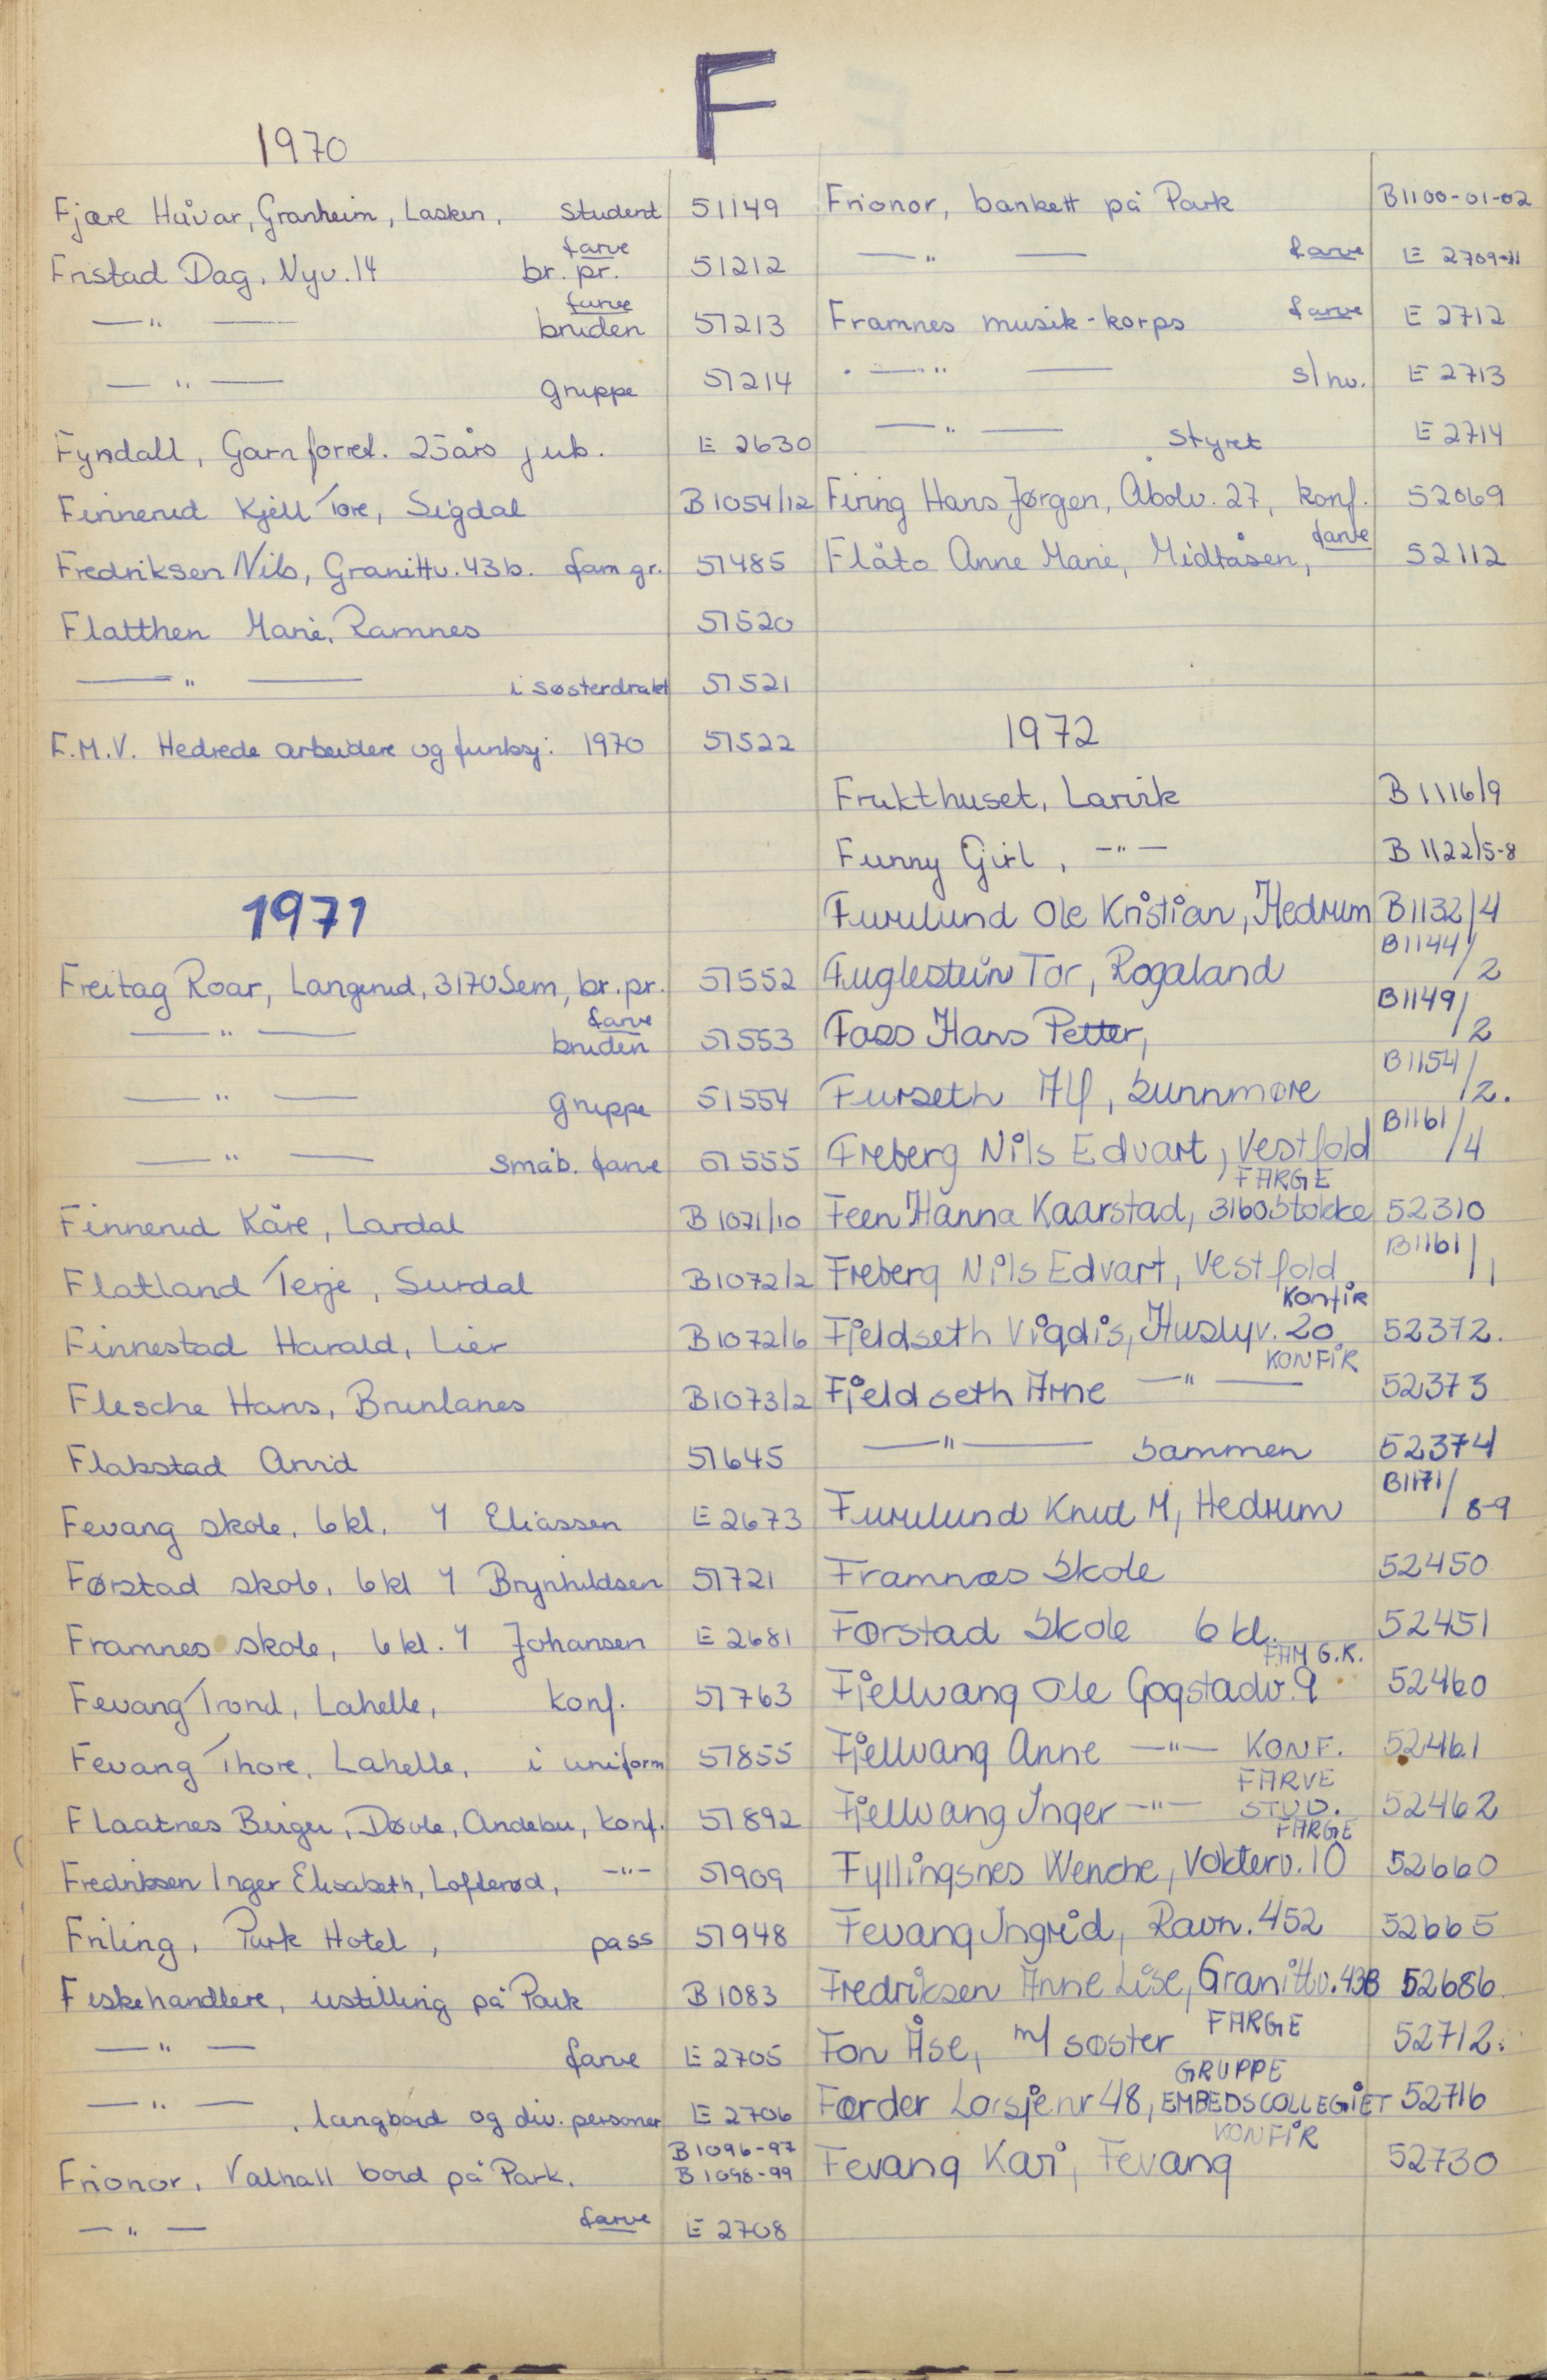 F
1970
Fjære Håvar, Granheim, Lasken, student 51149
Fristad Dag, Nyv. 14 farve br. pr. 51212
—"— farve bruden 51213
—"— gruppe 51214
Fyndall, Garnforret. 25 års jub. E 2630
Finnerud Kjell Tore, Sigdal B 1054/12
Fredriksen Nils, Granittv. 43b. fam gr. 51485
Flatthen Marie, Ramnes 51520
—"— i søsterdrakt 51521
F.M.V. Hedrede arbeidere og funksj: 1970 51522
1971
Freitag Roar, Langerud, 3170 Sem, br. pr. 51552
—"— farve bruden 51553
—"— gruppe 51554
—"— småb. farve 51555
Finnerud Kåre, Lardal B 1071/10
Flatland Terje, Surdal B 1072/2
Finnestad Harald, Lier B 1072/6
Flesche Hans, Brunlanes B 1073/2
Flakstad Arvid 51645
Fevang skole, 6 kl. Y Eliassen E 2673
Førstad skole, 6 kl Y Brynhildsen 51721
Framnes skole, 6 kl. Y Johansen E 2681
Fevang Trond, Lahelle, konf. 51763
Fevang Thore, Lahelle, i uniform 51855
Flaatnes Birger, Døvle, Andebu, konf. 51892
Fredriksen Inger Elisabeth, Lofterød, —"— 51909
Friling, Park Hotel, pass 51948
Fiskehandlere, ustilling på Park B 1083
—"— farve E 2705
—"—, langbord og div. personer E 2706
Frionor, Valhall bord på Park. B 1096-97 B 1098-99
—"— farve E 2708
Frionor, bankett på Park B 1100-01-02
—"— farve E 2709-11
Framnes musik-korps farve E 2712
—"— s/hv. E 2713
—"— Styret E 2714
Firing Hans Jørgen, Åbolv. 27, konf. 52069
Flåto Anne Marie, Midtåsen, farve 52112
1972
Frukthuset, Larvik B 1116/9
Funny Girl, —"— B 1122/5-8
Furulund Ole Kristian, Hedrum B1132/4
Fuglestein Tor, Rogaland B1144/2
Foss Hans Petter, B1149/2
Furseth Alf, Sunnmøre B1154/2.
Freberg Nils Edvart, Vestfold B1161/4
FARGE
Feen Hanna Kaarstad, 3160 Stokke 52310
Freberg Nils Edvart, Vestfold B1161/1
KONFIR
Fjeldseth Vigdis, Huslyv. 20 52372.
KONFIR
Fjeldseth Arne —"— 52373
—"— Sammen 52374
Furulund Knut M, Hedrum B1171/8-9
Framnæs Skole 52450
Førstad Skole 6 kl. 52451
FAM G.K.
Fjellvang Ole Gogstadv. 9 52460
Fjellvang Anne —"— KONF. 52461
FARVE
Fjellvang Inger —"— STUD. 52462
FARGE
Fyllingsnes Wenche, Vokterv. 10 52660
Fevang Ingrid, Ravn. 452 52665
Fredriksen Anne Lise, Granittv. 43B 52686
Fon Åse, m/ søster FARGE 52712.
GRUPPE
Færder Losje nr 48, EMBEDSCOLLEGIET 52716
KONFIR
Fevang Kari, Fevang 52730